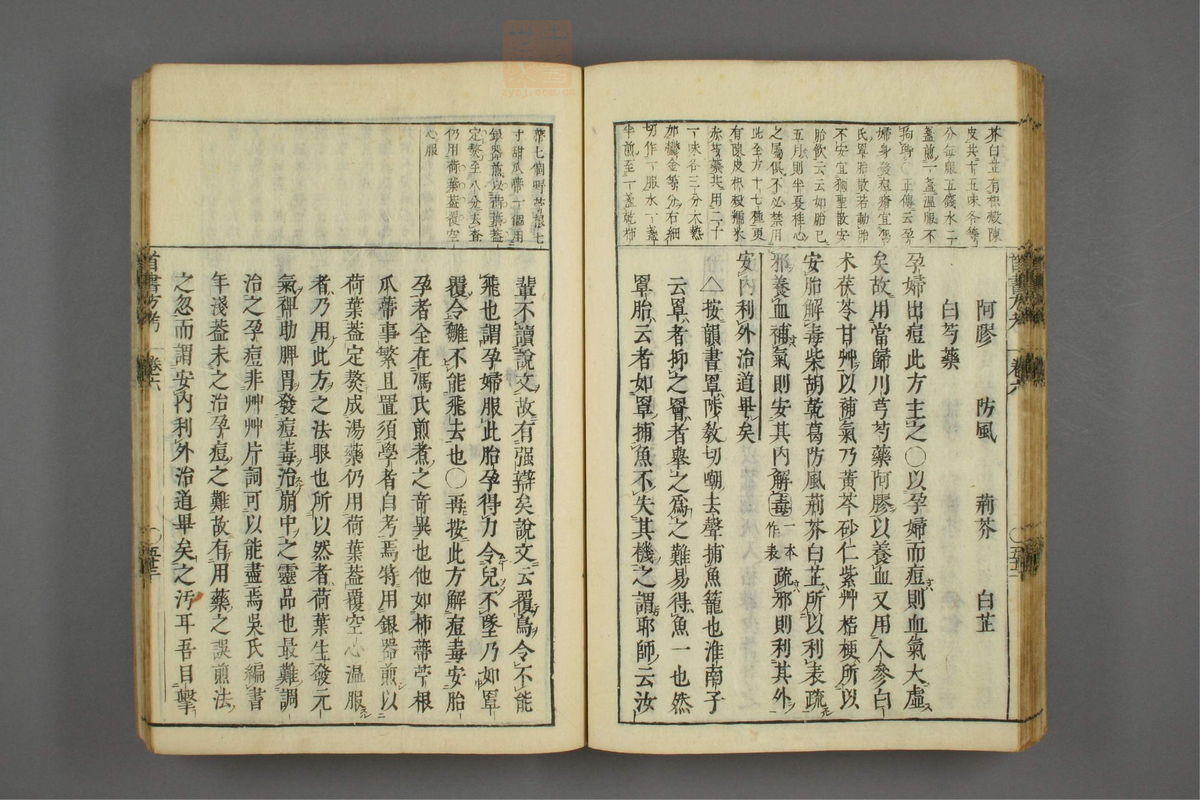 芥白芷有枳殼陳
皮共十五味各等
分每服五錢水二
盞煎一盞溫服不
拘時○正傳云孕
婦身發痘瘡宜
氏罩胎散若動胎
不安宜獨聖散安
胎飲云云如胎已
五月則半夏桂心
之屬俱不必禁用
此至方十七種更
有陳皮枳殼糯米
赤芍藥共用二十
一味各三分木熱
郁鬱金等分右細
切作一服水一盞
半煎至一盞乾柿
阿膠 防風 荊芥 白芷
白芍藥
孕婦出痘此方主之○以孕婦而痘則血氣大虛
矣故用當歸川芎芍藥阿膠以養血又用人參白
朮茯苓甘艸以補氣乃黃芩砂仁紫艸桔梗所以
安胎解毒柴胡乾葛防風荊芥白芷所以利表疏
邪養血補氣則安其內解毒一本作表疏邪則利其外
安內利外治道畢矣
△按韻書罩陟敎切嘲去聲捕魚籠也淮南子
云罩者抑之罾者舉之爲之難易得魚一也然
罩胎云者如罩捕魚不失其機之謂耶師云汝
首書方考 卷六
蒂七個野苧根七
寸甜瓜蒂一個用
銀器煎以荷葉蓋
定熬至八分去查
仍用荷葉蓋覆空
心服
輩不讀說文故有强辯矣說文云覆鳥令不能
飛也謂孕婦服此胎孕得力令兒不墜乃如罩
覆令雛不能飛去也○再按此方解痘毒安胎
孕者全在馮氏煎煮之奇異也他如柿蒂苧根
瓜蒂事繁且置須學者自考焉特用銀器煎以
荷葉蓋定熬成湯藥仍用荷葉蓋覆空心溫服
者乃用此方之法眼也所以然者荷葉生發元
氣裨助脾胃發痘毒治崩中之靈品也最難調
治之孕痘非艸艸片詞可以能盡焉吳氏編書
年淺蓋未之治孕痘之難故有用藥之誤煎法
之忽而謂安內利外治道畢矣之汚耳吾目擊
首書方考 卷六